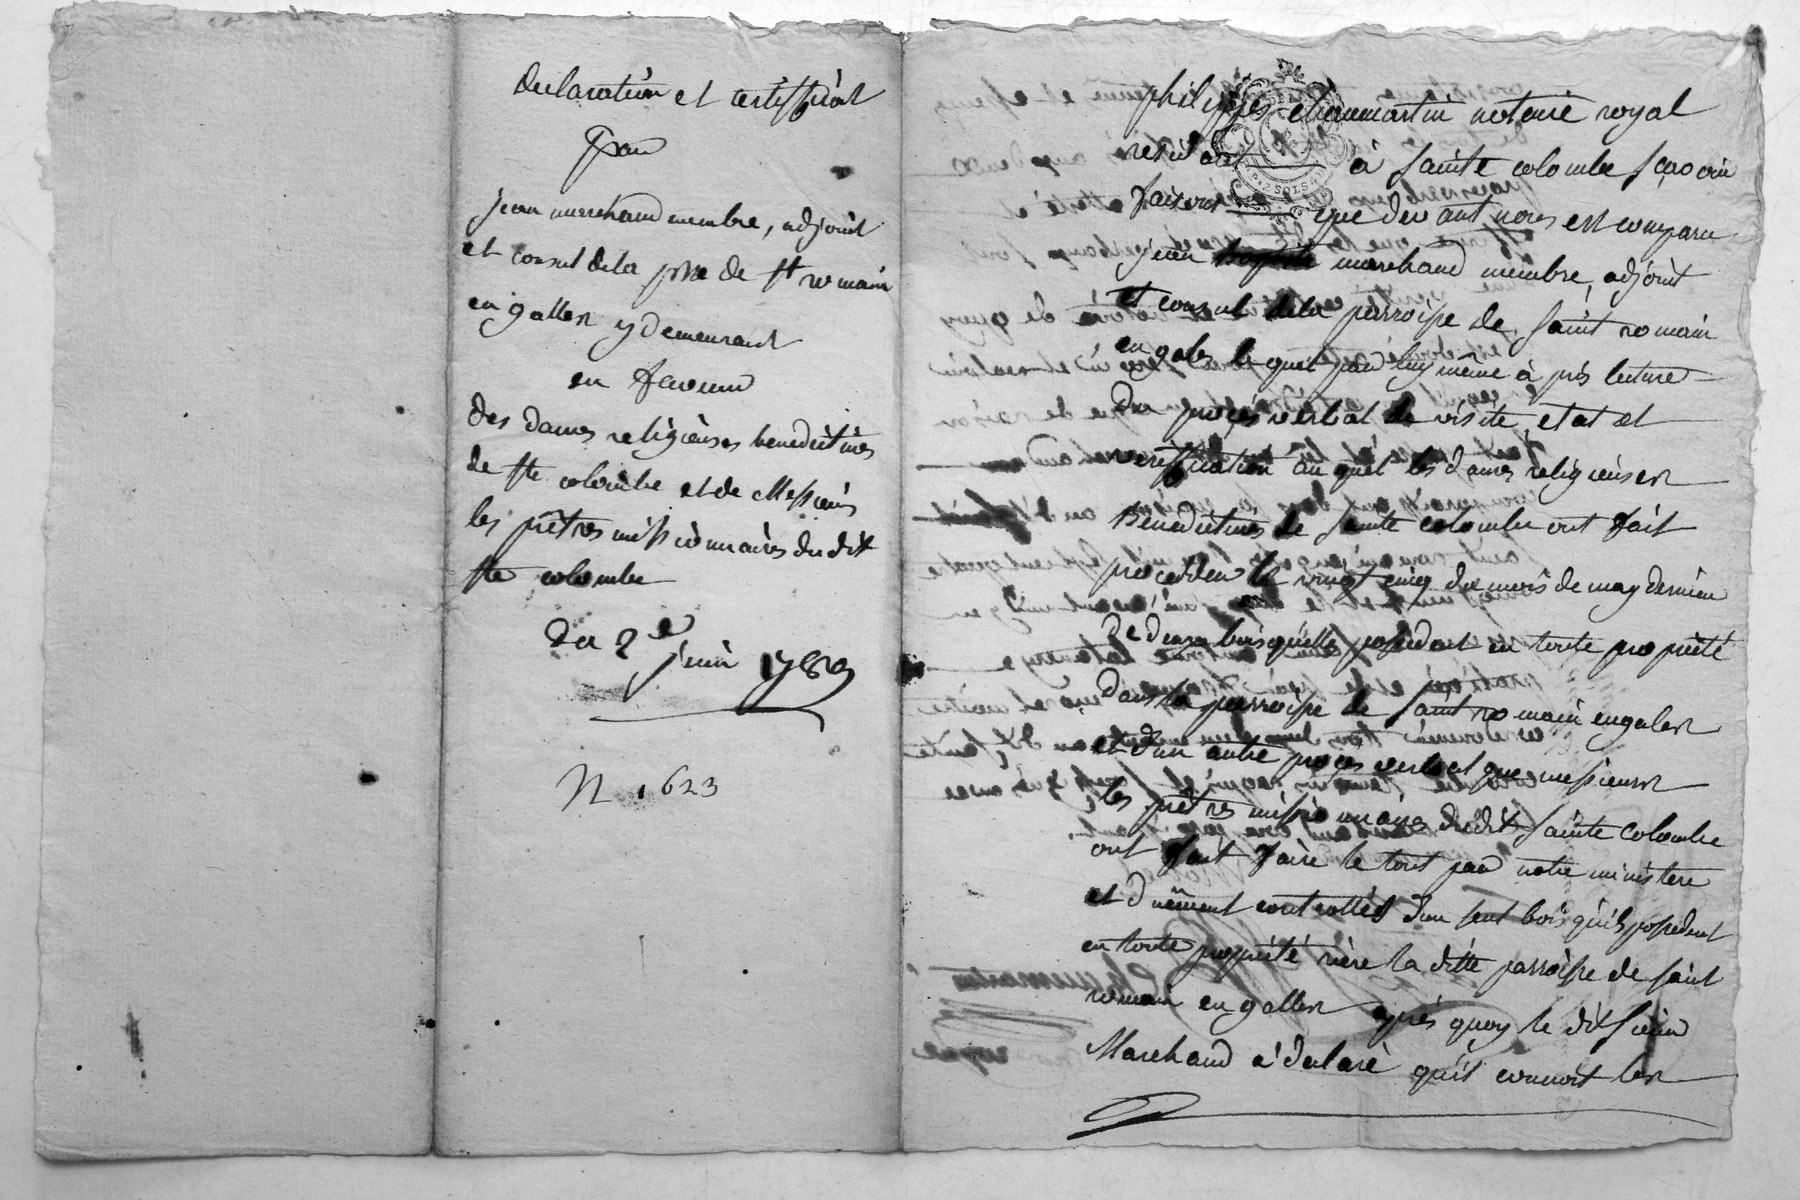 declaration et certifficat
Par
jean marchand membre, adjoint
et consul de la psse de st romain
en galles y demeurant
en faveur
des dames religieuses benedictines
de ste colombe et de Messieurs
les prêtres missionnaires du dit
ste colombe
du 2e
juin 1789
N 1623
philippes chaumartin notaire royal
residant à sainte colombe sçavoir
faisons que devant nous est comparu
jean marchand membre, adjoint
et consul de la parroisse de saint romain
en gales le quel par luy même à près lecture
du procés verbal de visite, etat et
veriffication au quel les dames religieuses
Benedictines de sainte colombe ont fait
proceder le vingt cinq du mois de may dernier
de deux bois qu'elle possedent en toute proprieté
dans la parroisse de saint romain en gales
et d'un autre procés verbal que messieurs
les prêtres missionnaires du dit sainte Colombe
ont fait faire le tout par notre ministere
et duëment controllés d'un seul bois qu'ils possedent
en toute proprieté riere la ditte parroisse de saint
romain en galles après quoy le dit sieur
Marchand a declaré qu'il connoit les